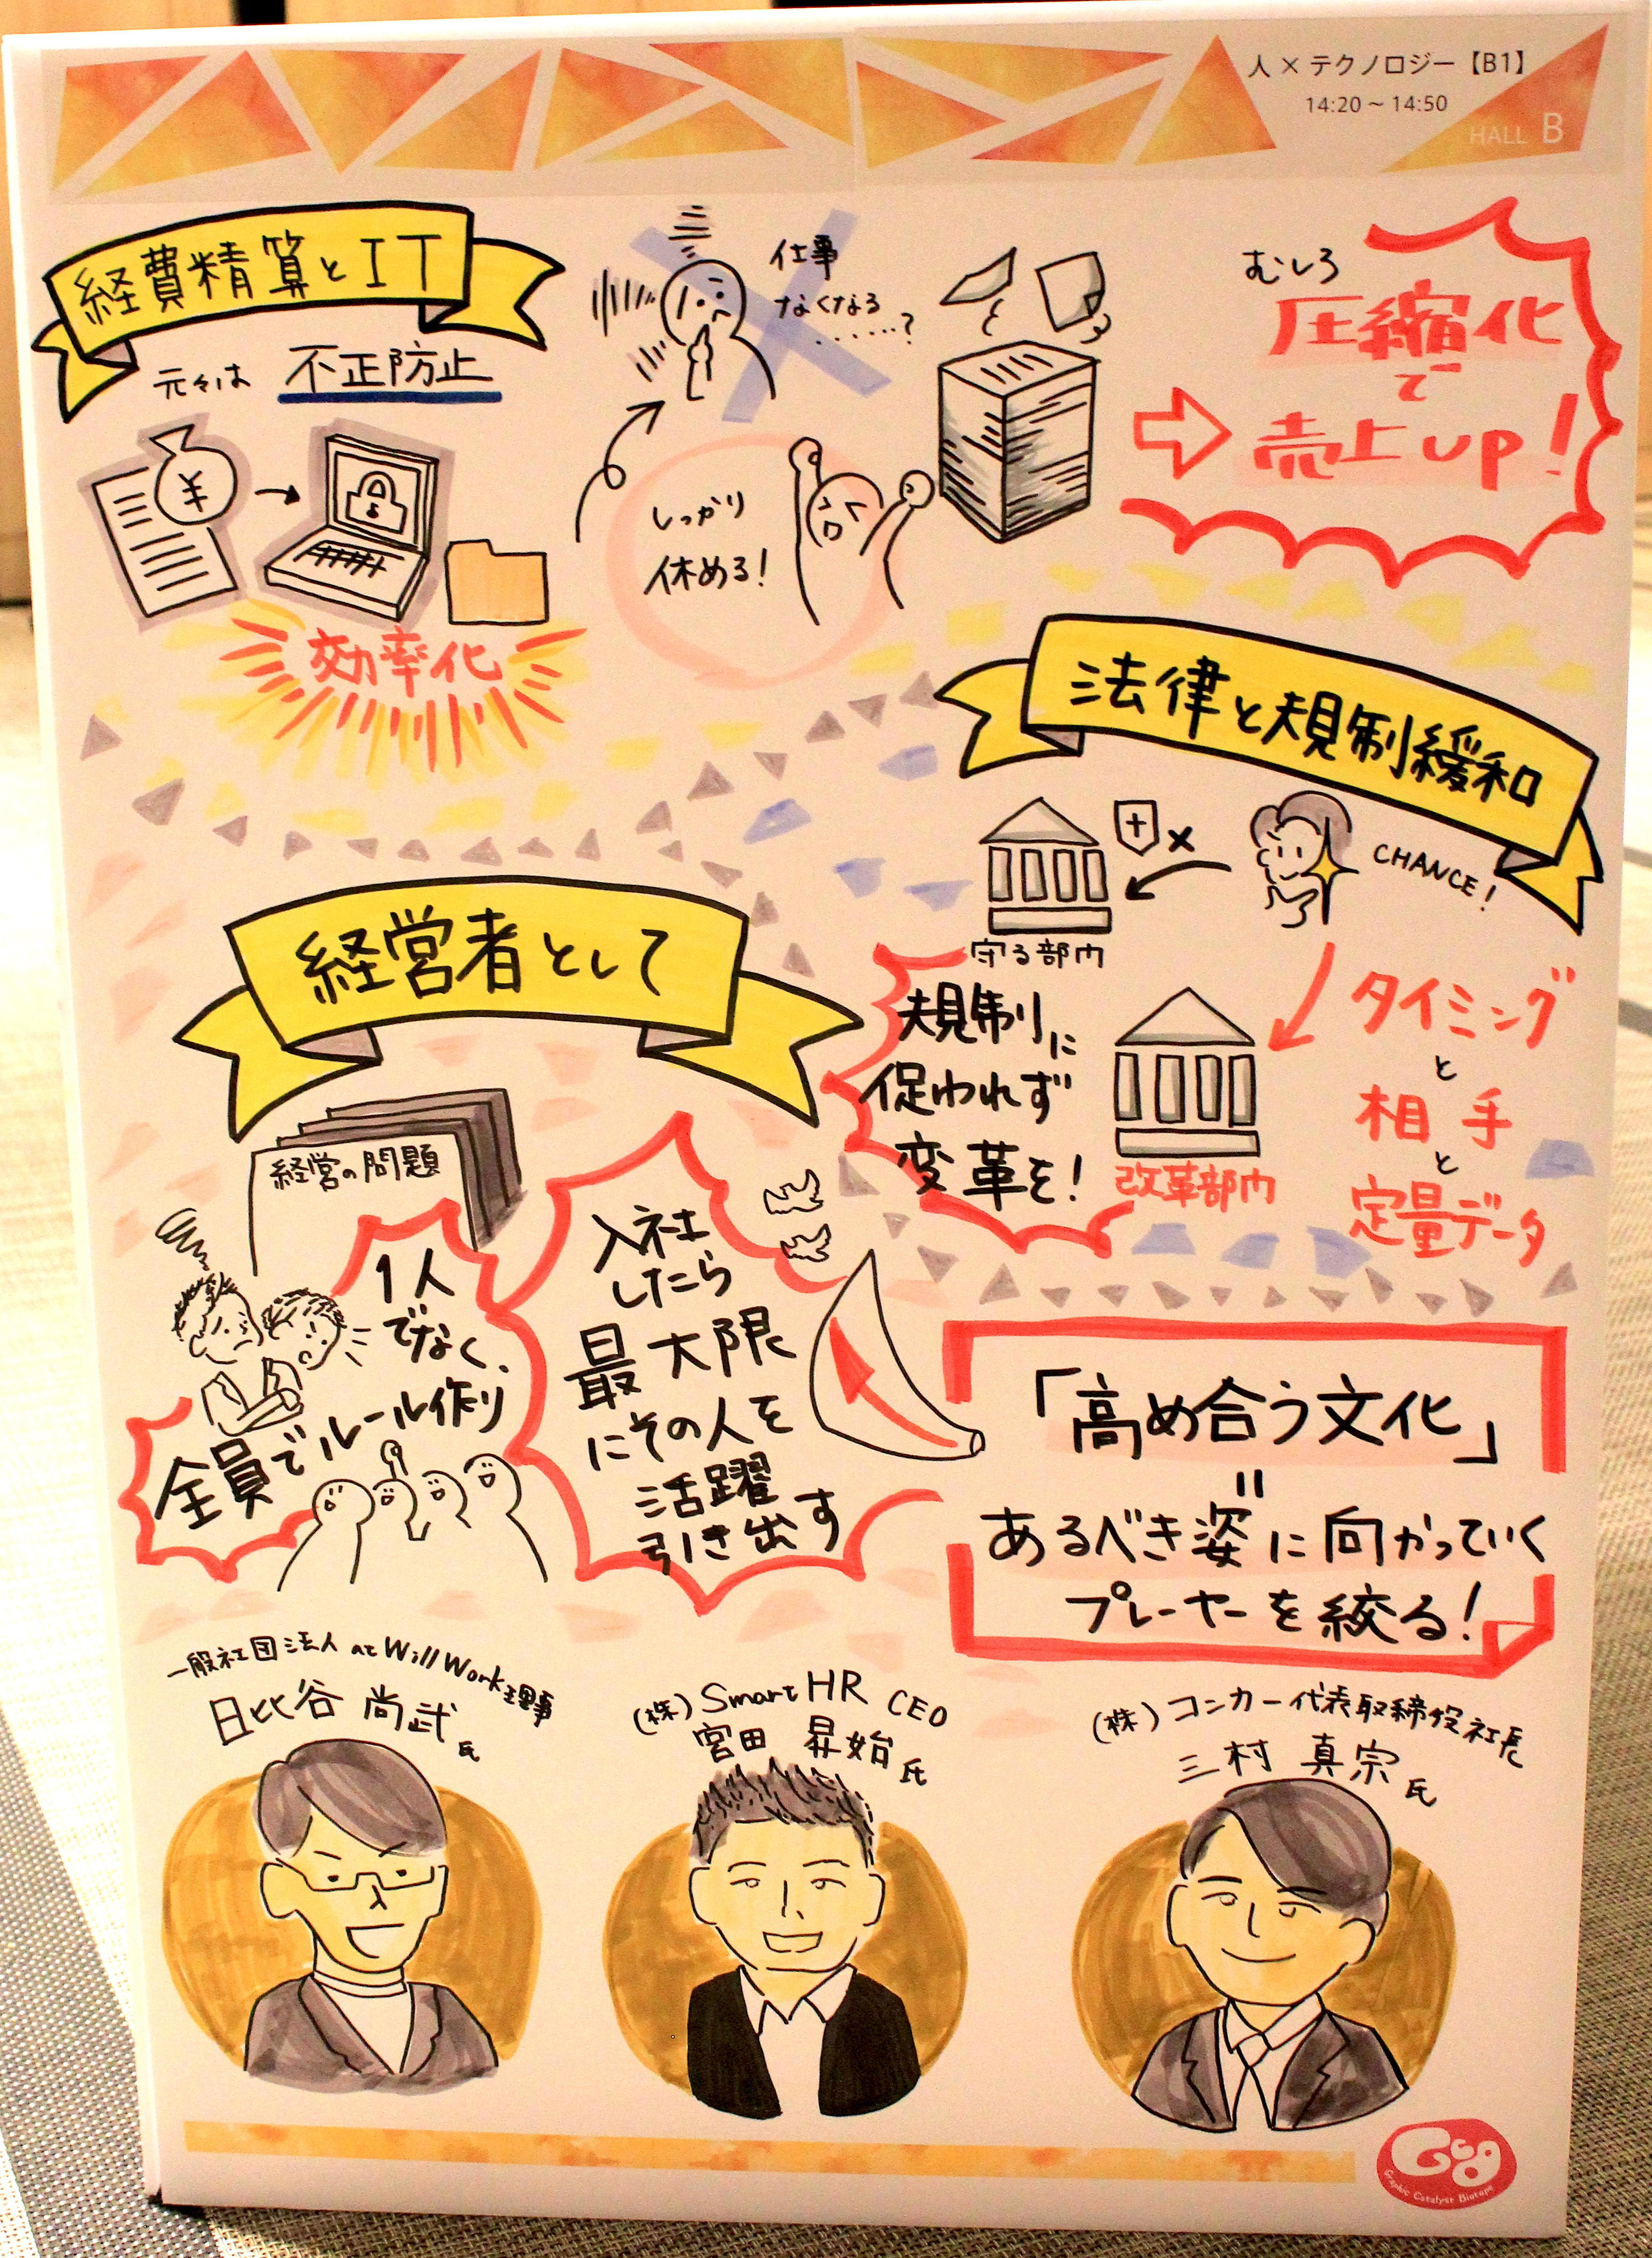 人×テクノロジー【B1】
14:20～14:50
HALL B
経費精算とIT
元々は 不正防止
¥
効率化
仕事
なくなる
......?
しっかり
休める!
むしろ
圧縮化
で
売上up!
法律と規制緩和
CHANCE!
守る部門
規制に
促われず
変革を!
改革部門
タイミング
と
相手
と
定量データ
経営者として
経営の問題
1人
でなく、
全員でルール作り
入社
したら
最大限
にその人を
活躍
引き出す
「高め合う文化」
=
あるべき姿に向かっていく
プレーヤーを絞る!
一般社団法人 at Will Work 理事
日比谷 尚武 氏
(株) SmartHR CEO
宮田 昇始 氏
(株) コンカー代表取締役社長
三村 真宗 氏
Gcb
Graphic Catalyst Biotope